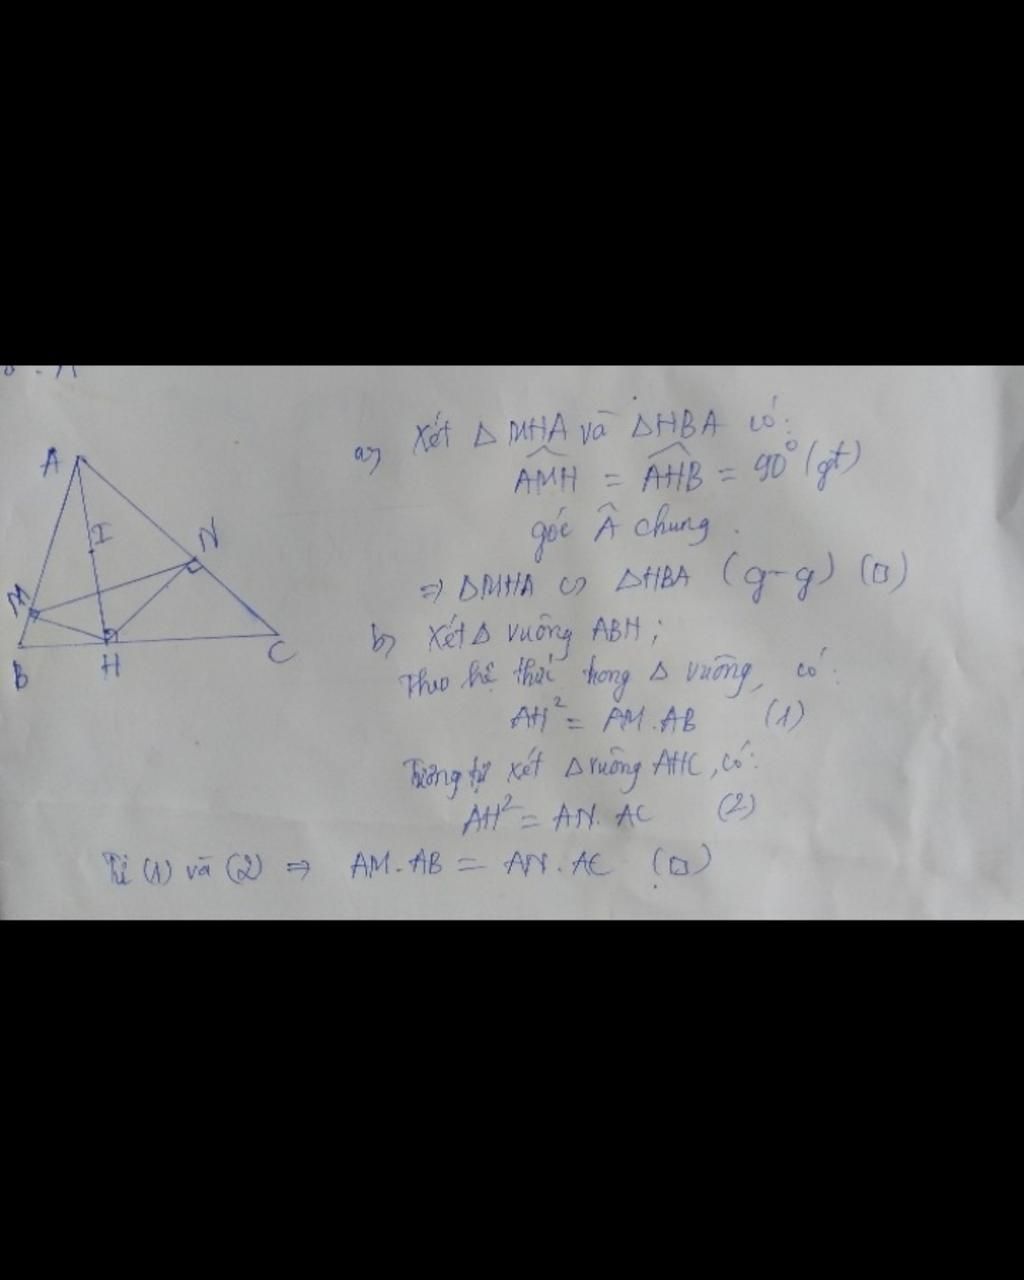 A
I
N
M
B
H
C
a) Xét △MHA và △HBA có:
AMH = AHB = 90° (gt)
góc Â chung.
⇒ △MHA ∽ △HBA (g-g) (□)
b) Xét △ vuông ABH;
Theo hệ thức trong △ vuông, có:
AH² = AM.AB (1)
Tương tự xét △ vuông AHC, có:
AH² = AN.AC (2)
Từ (1) và (2) ⇒ AM.AB = AN.AC (□)